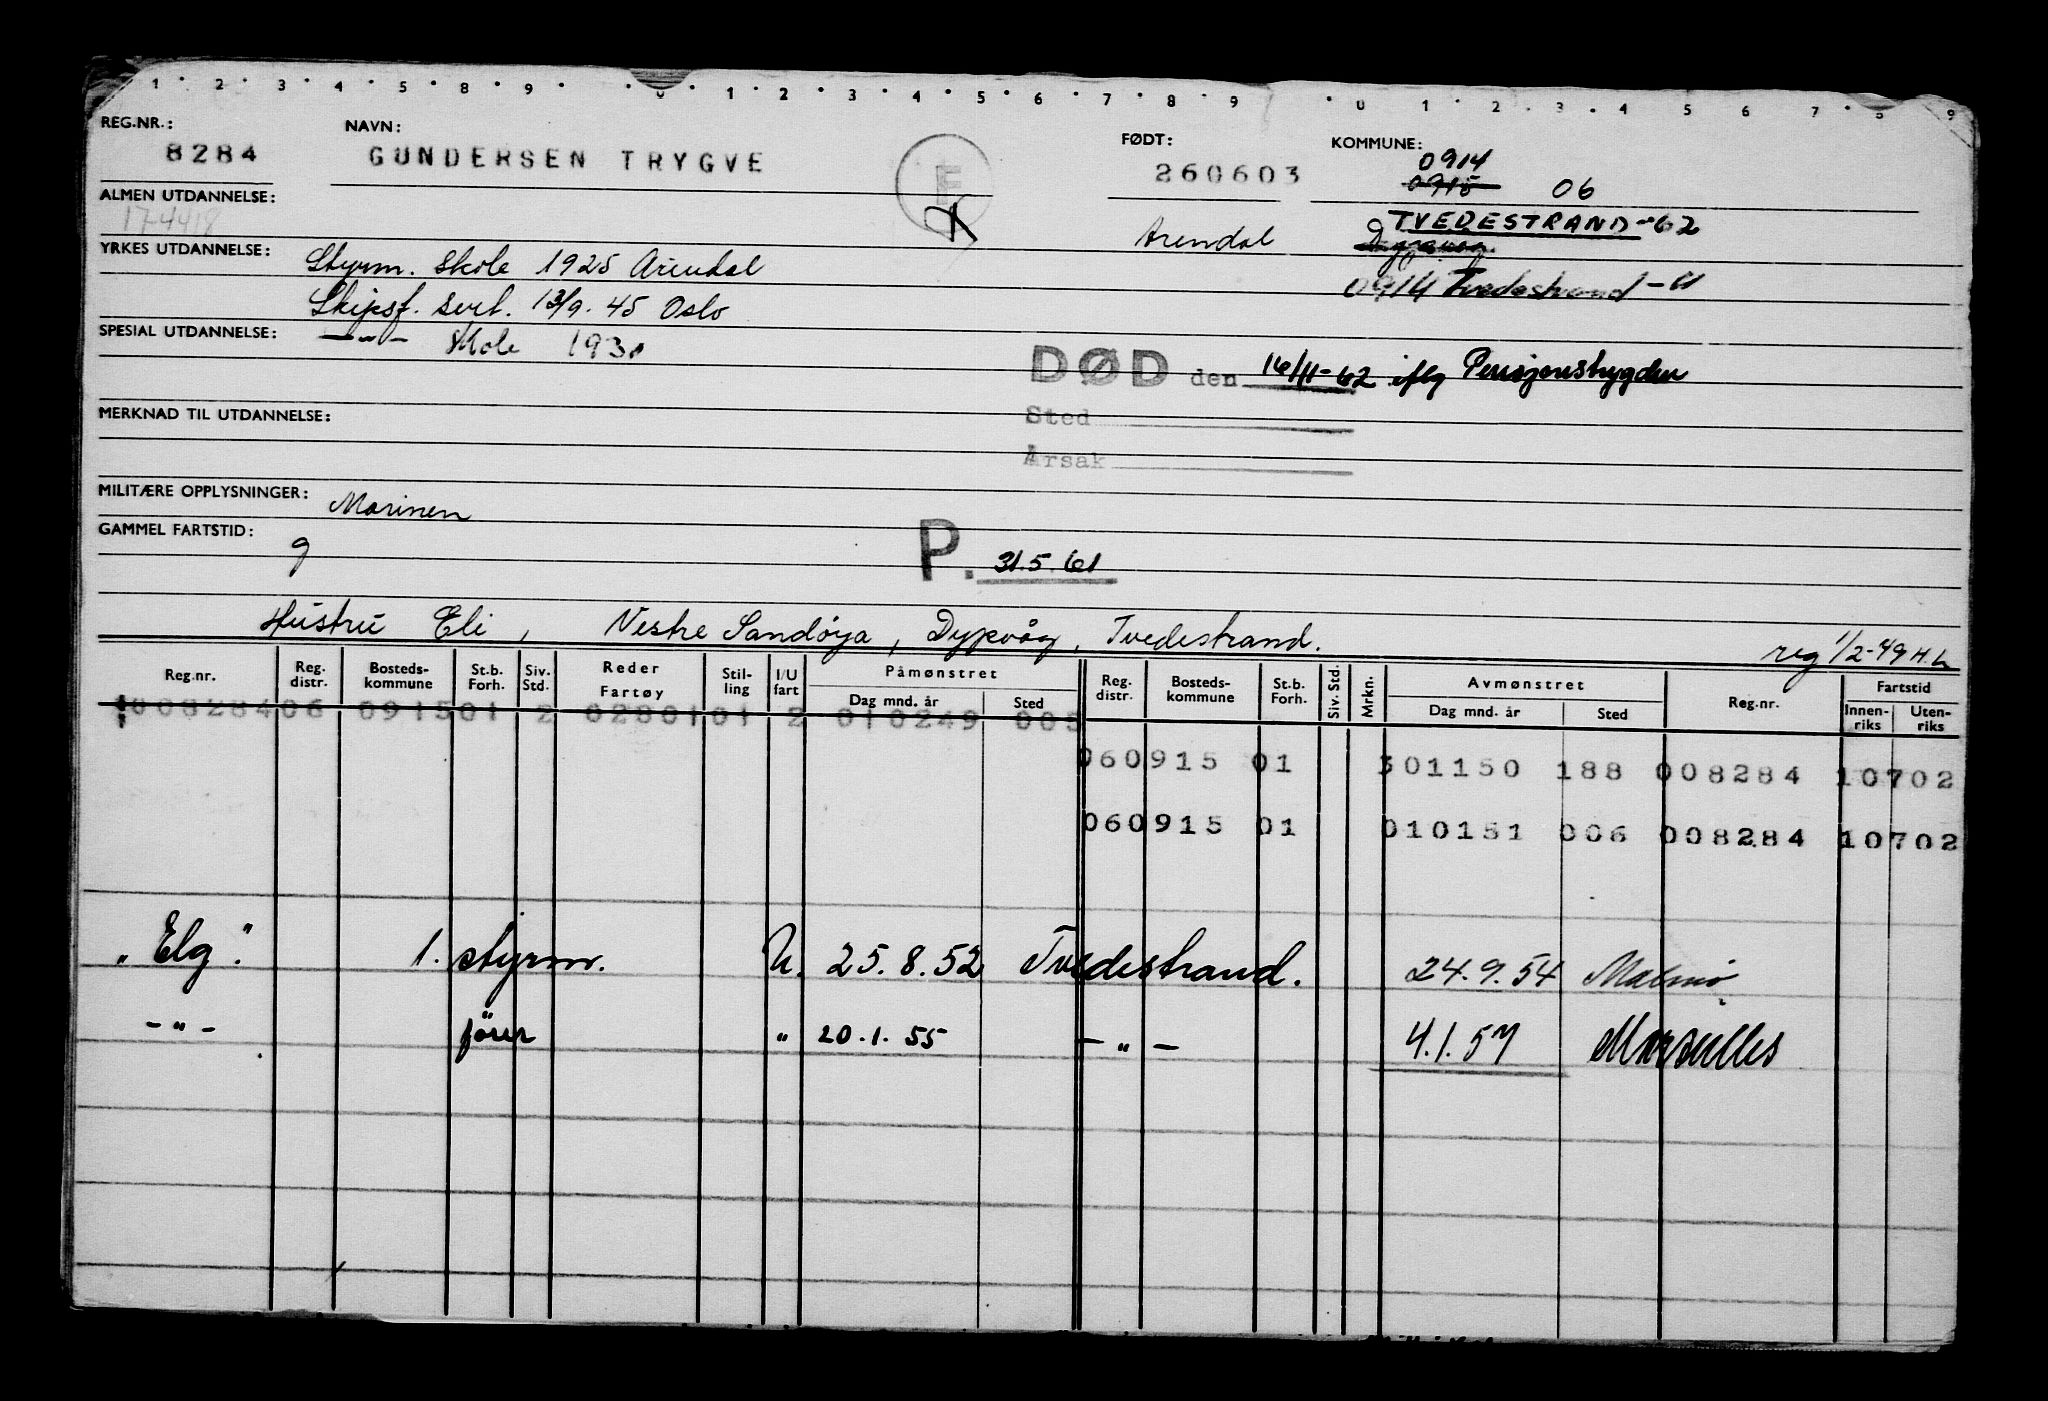 1 2 3 4 5 8 9 0 1 2 3 4 5 6 7 8 9 0 1 2 3 4 5 6 7 8 9
REG.NR.: NAVN: FØDT: KOMMUNE:
8284 GUNDERSEN TRYGVE 260603 0914
0915 06
ALMEN UTDANNELSE:
Arendal TVEDESTRAND-62
YRKES UTDANNELSE: Styrm. skole 1925 Arendal
0914 Tvedestrand-61
Skipsf. sert. 13/9.45 Oslo
SPESIAL UTDANNELSE: -"- skole 1930
DØD den 16/11-62 iflg Pensjonstrygden
MERKNAD TIL UTDANNELSE: Sted
Årsak
MILITÆRE OPPLYSNINGER: Marinen
GAMMEL FARTSTID: 9
P. 31.5.61
Hustru Eli, Vestre Sandøya, Dypvåg, Tvedestrand. reg 1/2-49 H.L
Reg.nr. Reg. distr. Bosteds-kommune St.b. Forh. Siv. Std. Reder Fartøy Stil-ling I/U fart Påmønstret Dag mnd. år Sted Reg. distr. Bosteds-kommune St.b. Forh. Siv. Std. Mrkn. Avmønstret Dag mnd. år Sted Reg.nr. Fartstid Innen-riks Uten-riks
00828406 091501 2 0280101 2 010249 005
060915 01 301150 188 008284 10702
060915 01 010151 006 008284 10702
"Elg". 1. styrm. U. 25.8.52 Tvedestrand. 24.9.54 Malmö
-"- förer " 20.1.55 -"- 4.1.57 Marseilles